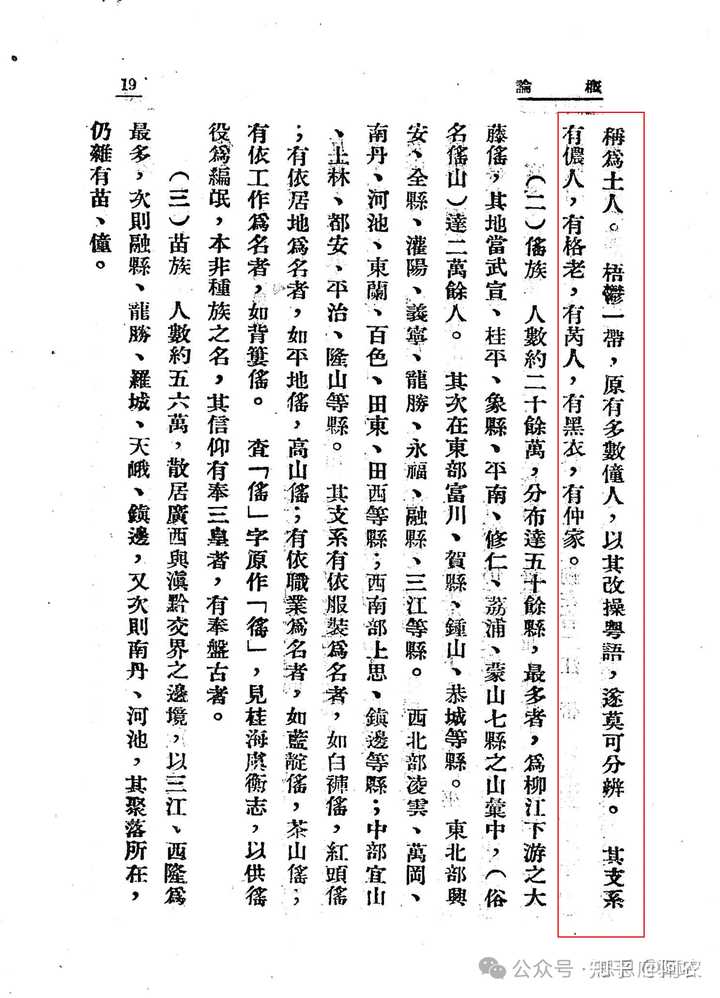 概論
19
稱爲土人。　梧鬱一帶，原有多數僮人，以其改操粵語，遂莫可分辨。　其支系
有儂人，有格老，有芮人，有黑衣，有仲家。
（二）傜族　人數約二十餘萬，分布達五十餘縣，最多者，爲柳江下游之大
藤傜，其地當武宣、桂平、象縣、平南、修仁、荔浦、蒙山七縣之山彙中，（俗
名傜山）達二萬餘人。　其次在東部富川、賀縣、鍾山、恭城等縣。　東北部興
安、全縣、灌陽、義寧、龍勝、永福、融縣、三江等縣。　西北部凌雲、萬岡、
南丹、河池、東蘭、百色、田東、田西等縣；西南部上思、鎭邊等縣；中部宜山
、上林、都安、平治、隆山等縣。　其支系有依服裝爲名者，如白褲傜，紅頭傜
；有依居地爲名者，如平地傜，高山傜；有依職業爲名者，如藍靛傜，茶山傜；
有依工作爲名者，如背簍傜。　查「傜」字原作「徭」，見桂海虞衡志，以供徭
役爲編氓，本非種族之名，其信仰有奉三皇者，有奉盤古者。
（三）苗族　人數約五六萬，散居廣西與滇黔交界之邊境，以三江、西隆爲
最多，次則融縣、龍勝、羅城、天峨、鎭邊，又次則南丹、河池，其聚落所在，
仍雜有苗、僮。
公众号·
知乎@阿农